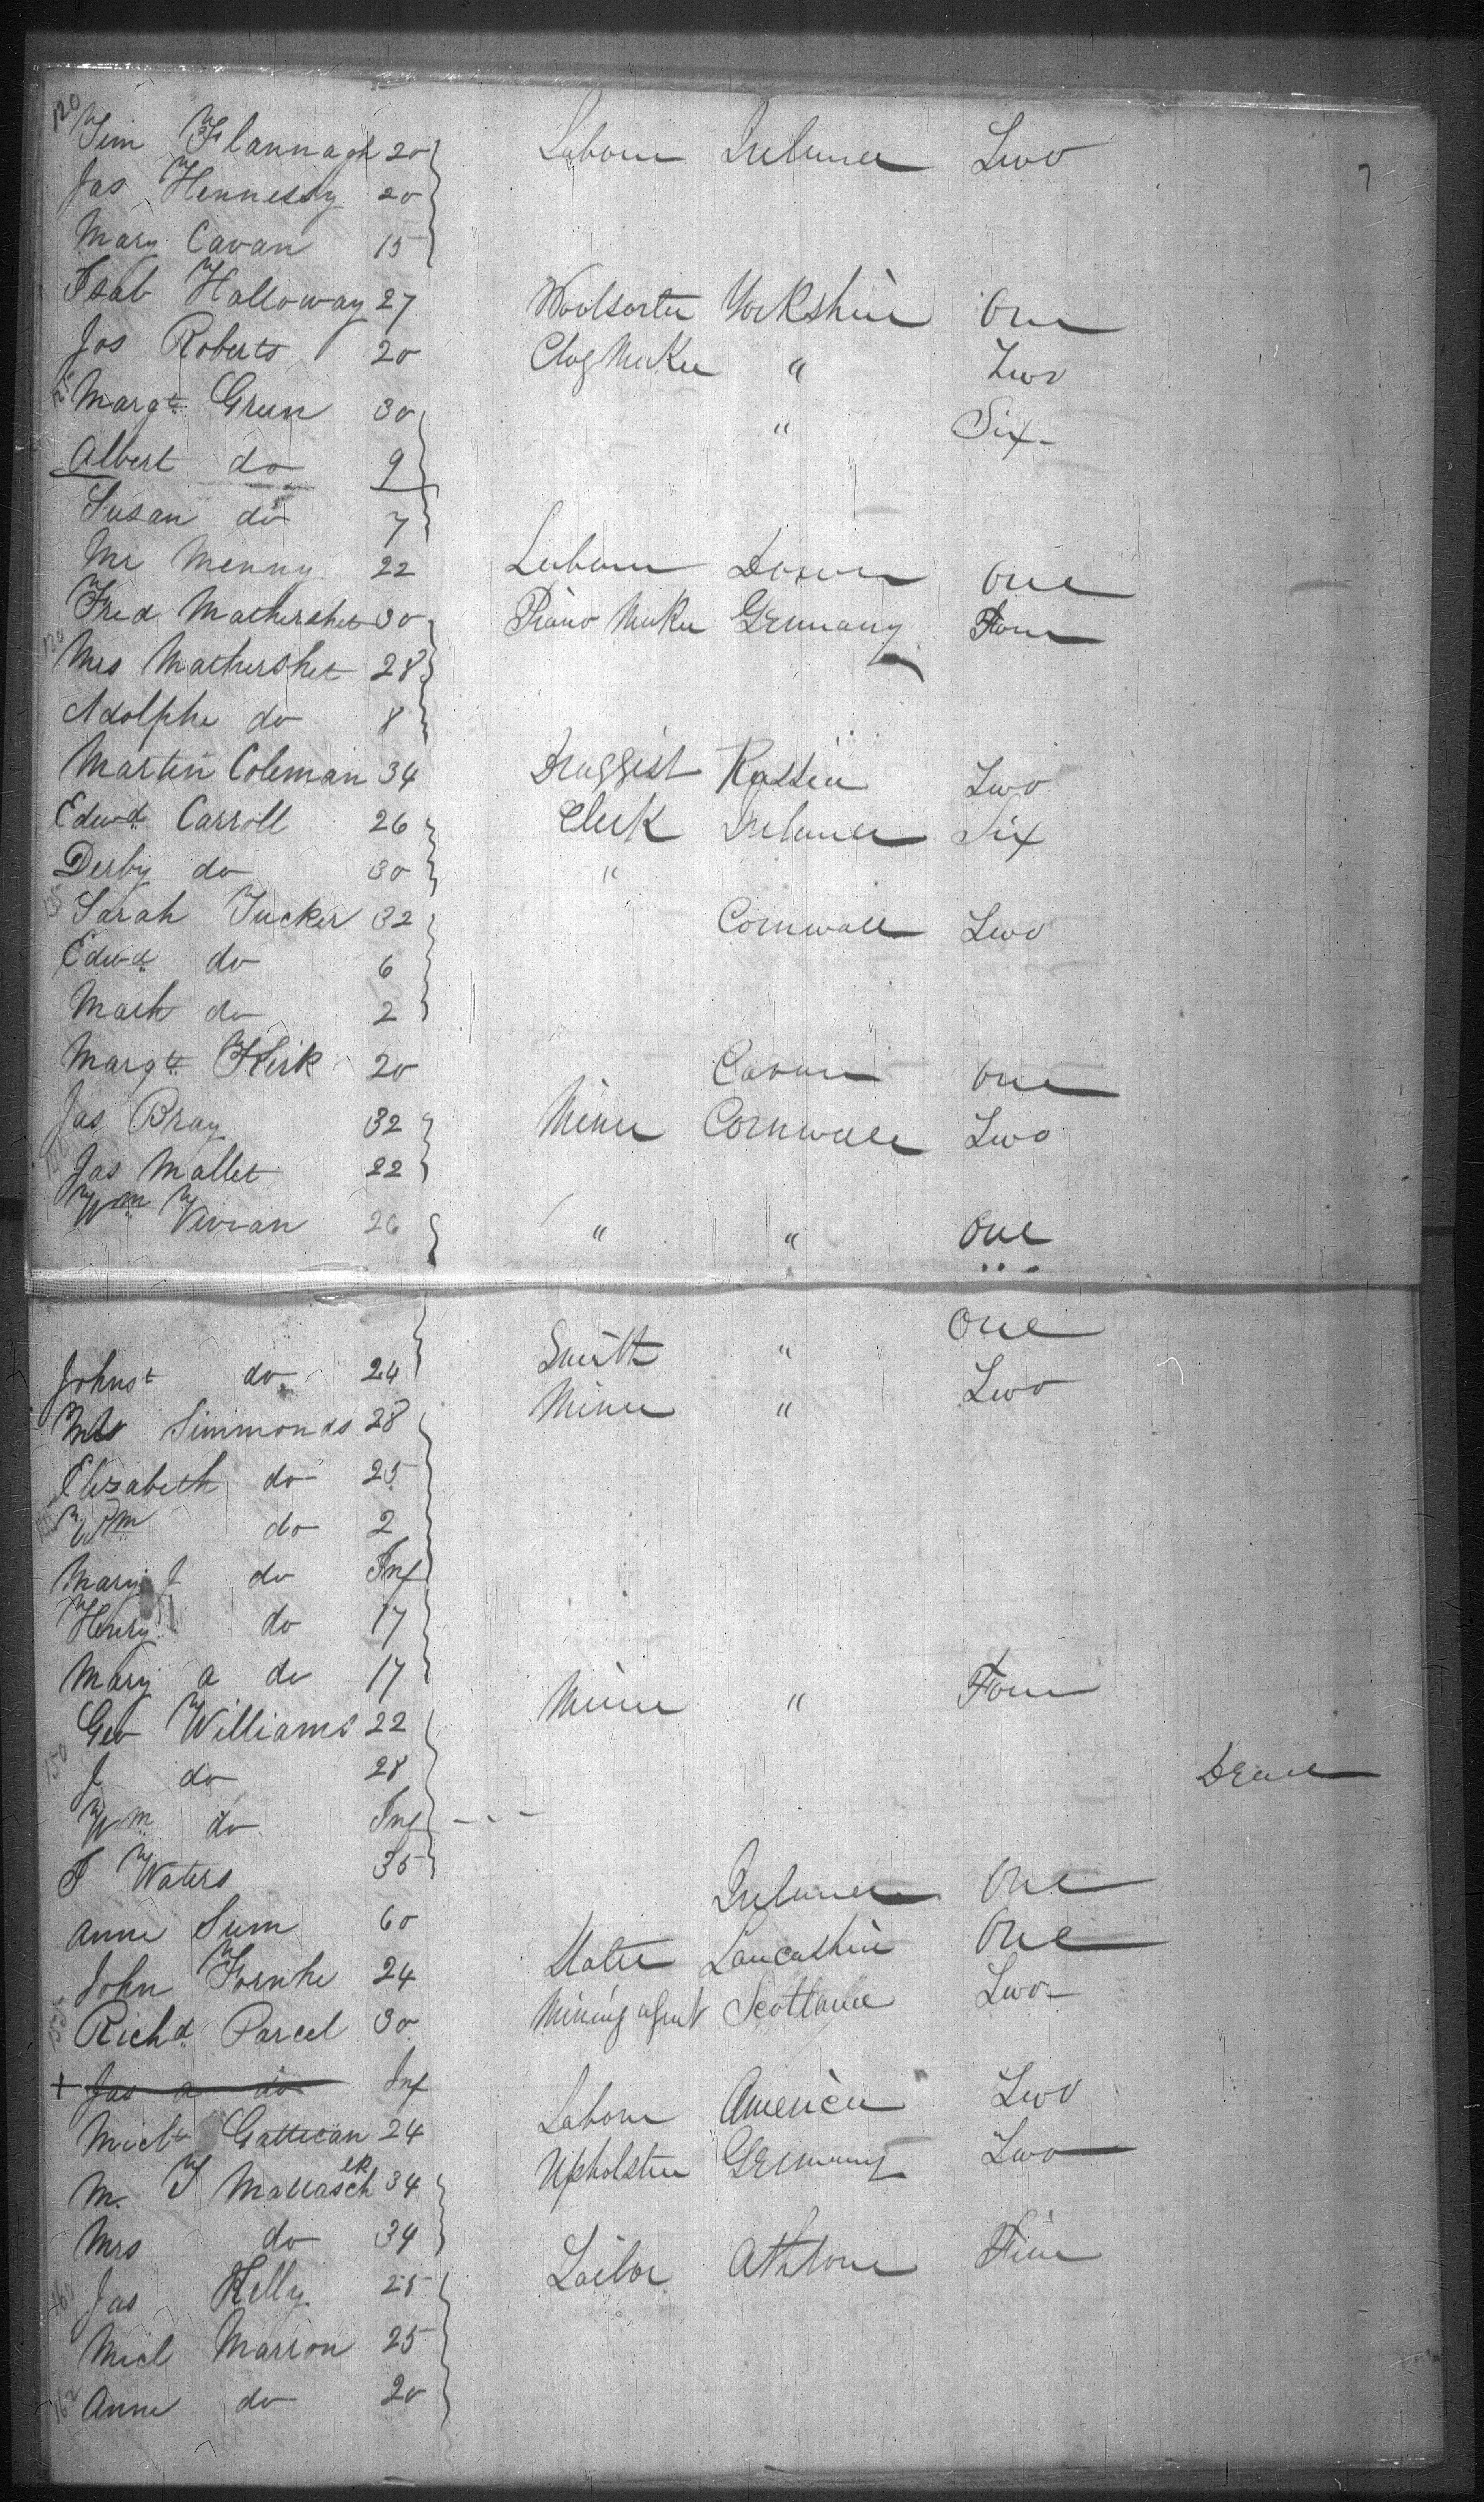 120 Tim Flannagh 20 Labour Ireland Two 7
Jas Hennessy 20
Mary Cavan 15
Isab Halloway 27 Woolsorter Yorkshire One
Jos Roberts 20 Clog Maker " Two
Margt Green 30 " Six
Albert do 9
Susan do 7
Mr Menny 22 Labour Devon One
Fred Mathershet 30 Piano Maker Germany Four
130 Mrs Mathershet 28
Adolphe do 8
Martin Coleman 34 Druggist Russia Two
Edwd Carroll 26 Clerk Ireland Six
Derby do 30 "
135 Sarah Tucker 32 Cornwall Two
Edwd do 6
Mark do 2
Margt Kirk 20 Cavan One
Jas Bray 32 Miner Cornwall Two
140 Jas Mallet 22
Wm Vivian 26 " " One
One
Johnst do 24 Smith "
Mr Simmonds 28 Miner " Two
Elizabeth do 25
Wm do 2
Mary J do Inf
Henry do 17
Mary A do 17
Geo Williams 22 Miner " Four
150 J do 28
Wm do Inf
F Waters 35
Anne Sum 60 Ireland One
John Fornhe 24 Slater Lancashire One
155 Richd Parcel 30 Mining agent Scotland Two
+ Jas a do Inf
Michl Gattican 24 Labour America Two
M. T Mallasch 34 Upholster Germany Two
Mrs do 34
160 Jas Kelly 25 Tailor Athlone Five
Micl Marron 25
162 Anne do 20